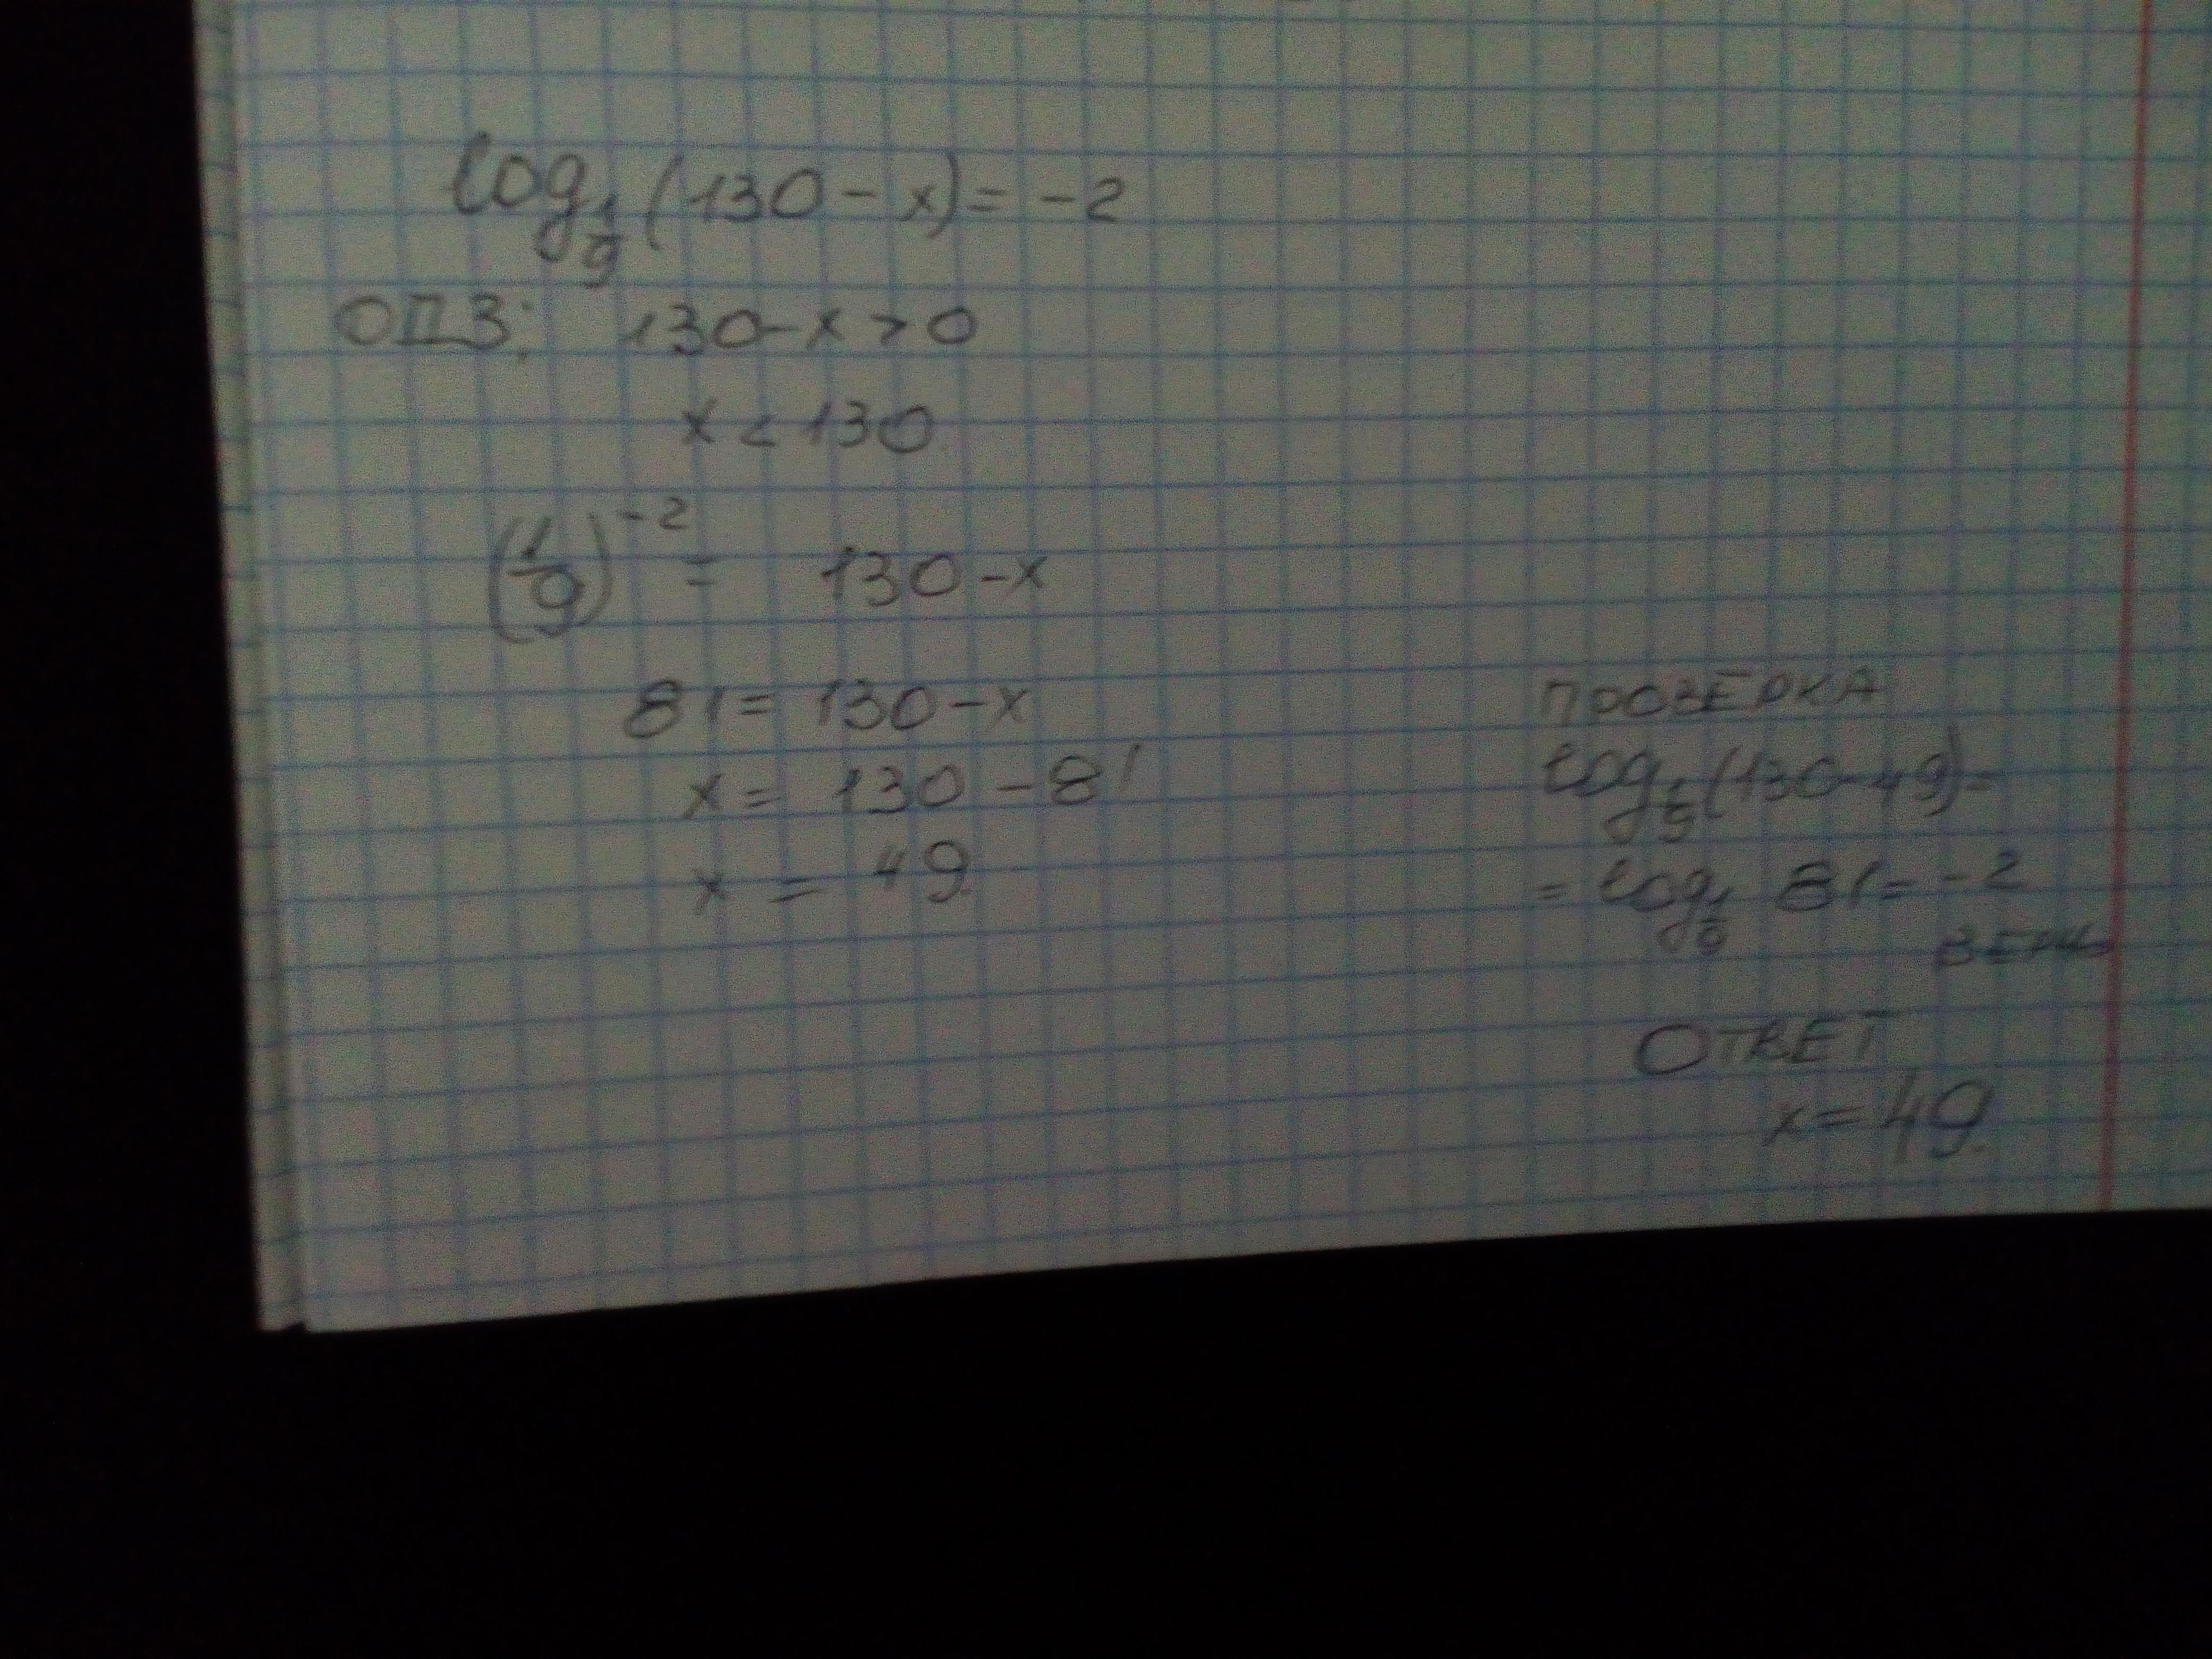 log 1/9 (130 - x) = -2
ОДЗ: 130-x>0
x < 130
(1/9)^-2 = 130-x
81 = 130-x
x = 130 - 81
x = 49
ПРОВЕРКА
log 1/9 (130-49) =
= log 1/9 81 = -2
ОТВЕТ
x = 49.